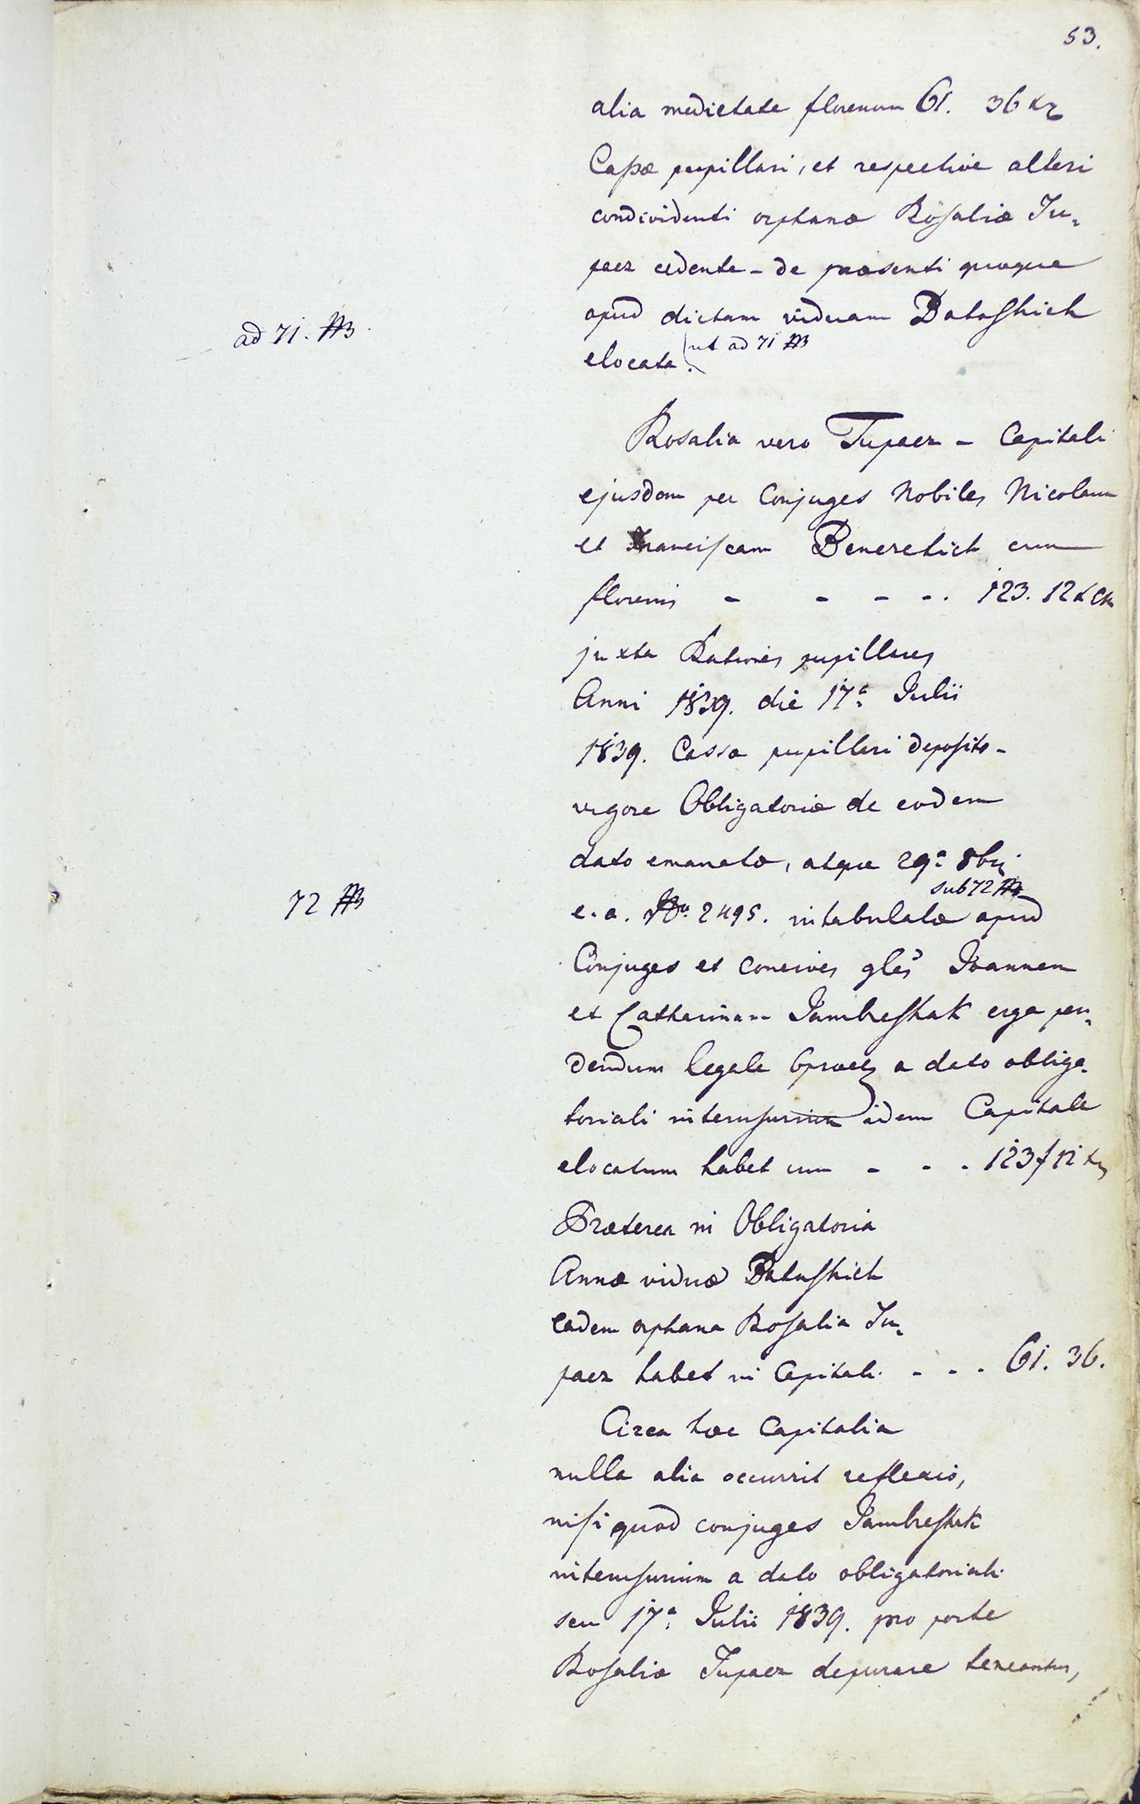 53.
alia medietate florenum 61. 36 xr
Cassæ pupillari, et respective alteri
condividenti orphanæ Rosaliæ Tu-
paez cedente - de præsenti quoque
ad 71.
apud dictam viduam Batushich
elocata. (ut ad 71
Rosalia vero Tupaez - Capitali
ejusdem per Conjuges Nobiles Nicolaum
et Franciscam Benerchich cum
florenis - - - - . 123. 12 x
juxta Rationes pupillares
Anni 1839. die 17a Julii
1839. Cassa pupillari deposito -
vigore Obligatoriæ de eodem
dato emanatæ, atque 29a 8bris
72
sub 72
e. a. No 2495. intabulatæ apud
Conjuges et concives gles Joannem
et Catharinam Jambreshak erga pen-
dendum legale 6 a dato obliga-
toriali interusurium idem Capitale
elocatum habet cum - - - 123 f 12 xr
Præterea in Obligatoria
Annæ viduæ Batushich
eadem orphana Rosalia Tu-
paez habet in Capitali. - - - 61. 36.
Circa hæc Capitalia
nulla alia occurrit reflexio,
nisi quod conjuges Jambreshak
interusurium a dato obligatoriali
seu 17a Julii 1839. pro parte
Rosaliæ Tupaez depurare teneantur,